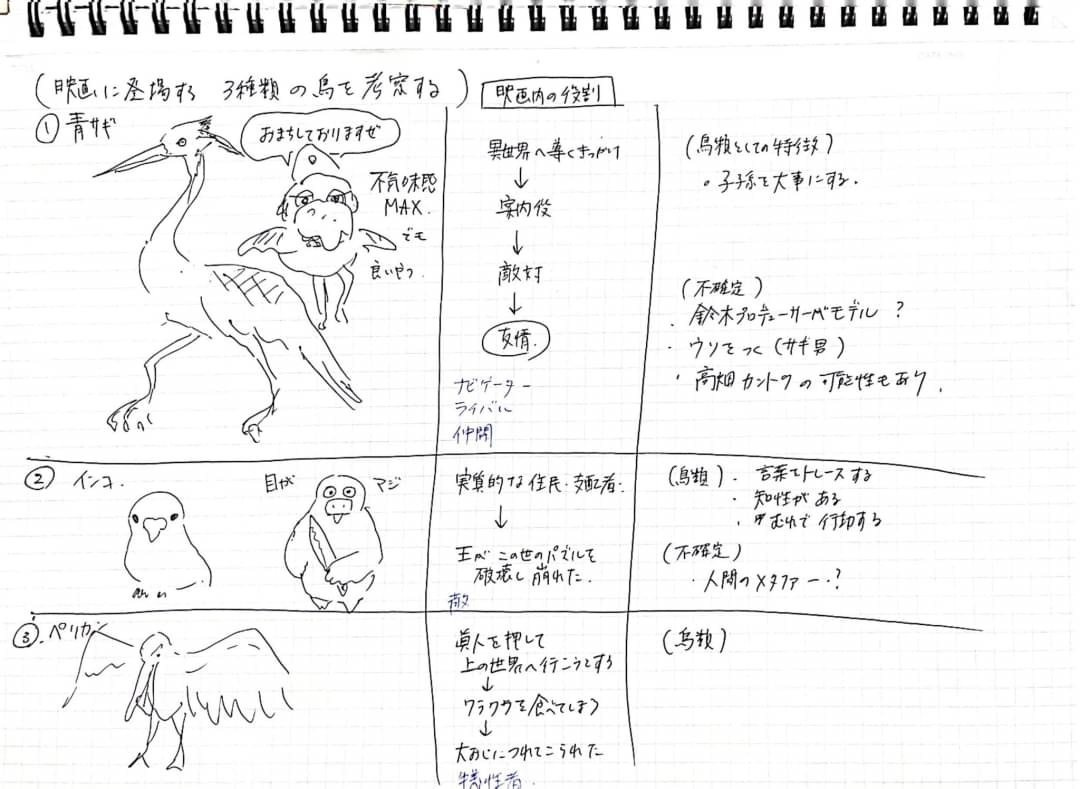 (映画に登場する 3種類の鳥を考察する)
映画内の役割
① 青サギ
おまちしておりますぜ
不気味感
MAX.
でも
良いやつ.
異世界へ導くきっかけ
↓
案内役
↓
敵対
↓
友情.
ナビゲーター
ライバル
仲間
(鳥類としての特徴)
。子孫を大事にする.
(不確定)
・鈴木プロデューサーがモデル ?
・ウソをつく (サギ男)
・高畑カントクの可能性もあり.
② インコ.
目が
マジ
実質的な住民・支配者.
↓
王がこの世のパズルを
破壊し崩れた.
敵
(鳥類)・言葉をトレースする
・知性がある
・むれで行動する
(不確定)
・人間のメタファー・?
③.ペリカン
眞人を押して
上の世界へ行こうとする
↓
ワラワラを食べてしまう
↓
大おじにつれてこられた
犠牲者.
(鳥類)